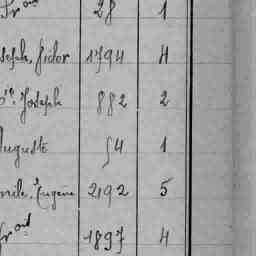 Frᵒⁱˢ 28 1
Joseph, Isidor 1794 4
Joseph 882 2
Auguste 54 1
Emile, Eugène 2192 5
frᵒⁱˢ 1897 4